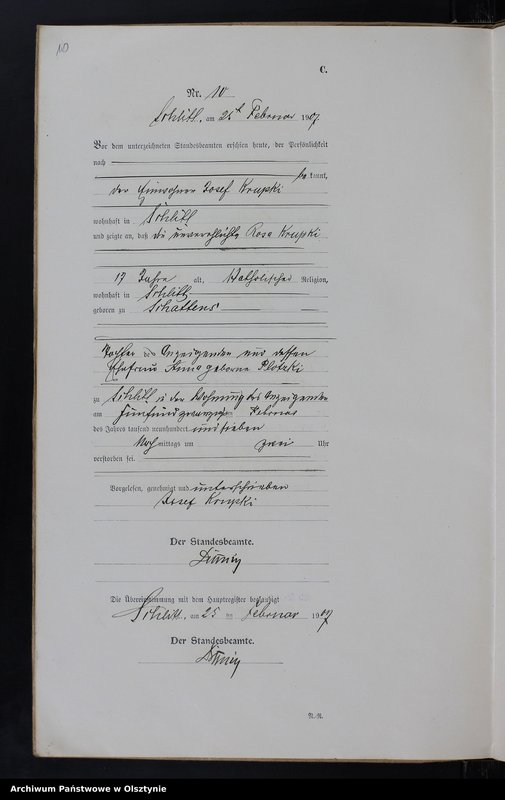 10
C.
Nr. 10
Schlitt, am 25t Februar 1907.
Vor dem unterzeichneten Standesbeamten erschien heute, der Persönlichkeit
nach
bekannt,
der Einwohner Josef Krupski
wohnhaft in Schlitt
und zeigte an, daß die unverehlichte Rosa Krupski
17 Jahre alt, katholischer Religion,
wohnhaft in Schlitt
geboren zu Schattens
Tochter des Anzeigenden und dessen
Ehefrau Anna geborene Plotzki
zu Schlitt in der Wohnung des Anzeigenden
am fünfundzwanzigsten Februar
des Jahres tausend neunhundert und sieben
Nachmittags um zwei Uhr
verstorben sei.
Vorgelesen, genehmigt und unterschrieben
Josef Krupski
Der Standesbeamte.
Die Übereinstimmung mit dem Hauptregister beglaubigt
Schlitt, am 25 ten Februar 1907
Der Standesbeamte.
N.-R.
Archiwum Państwowe w Olsztynie